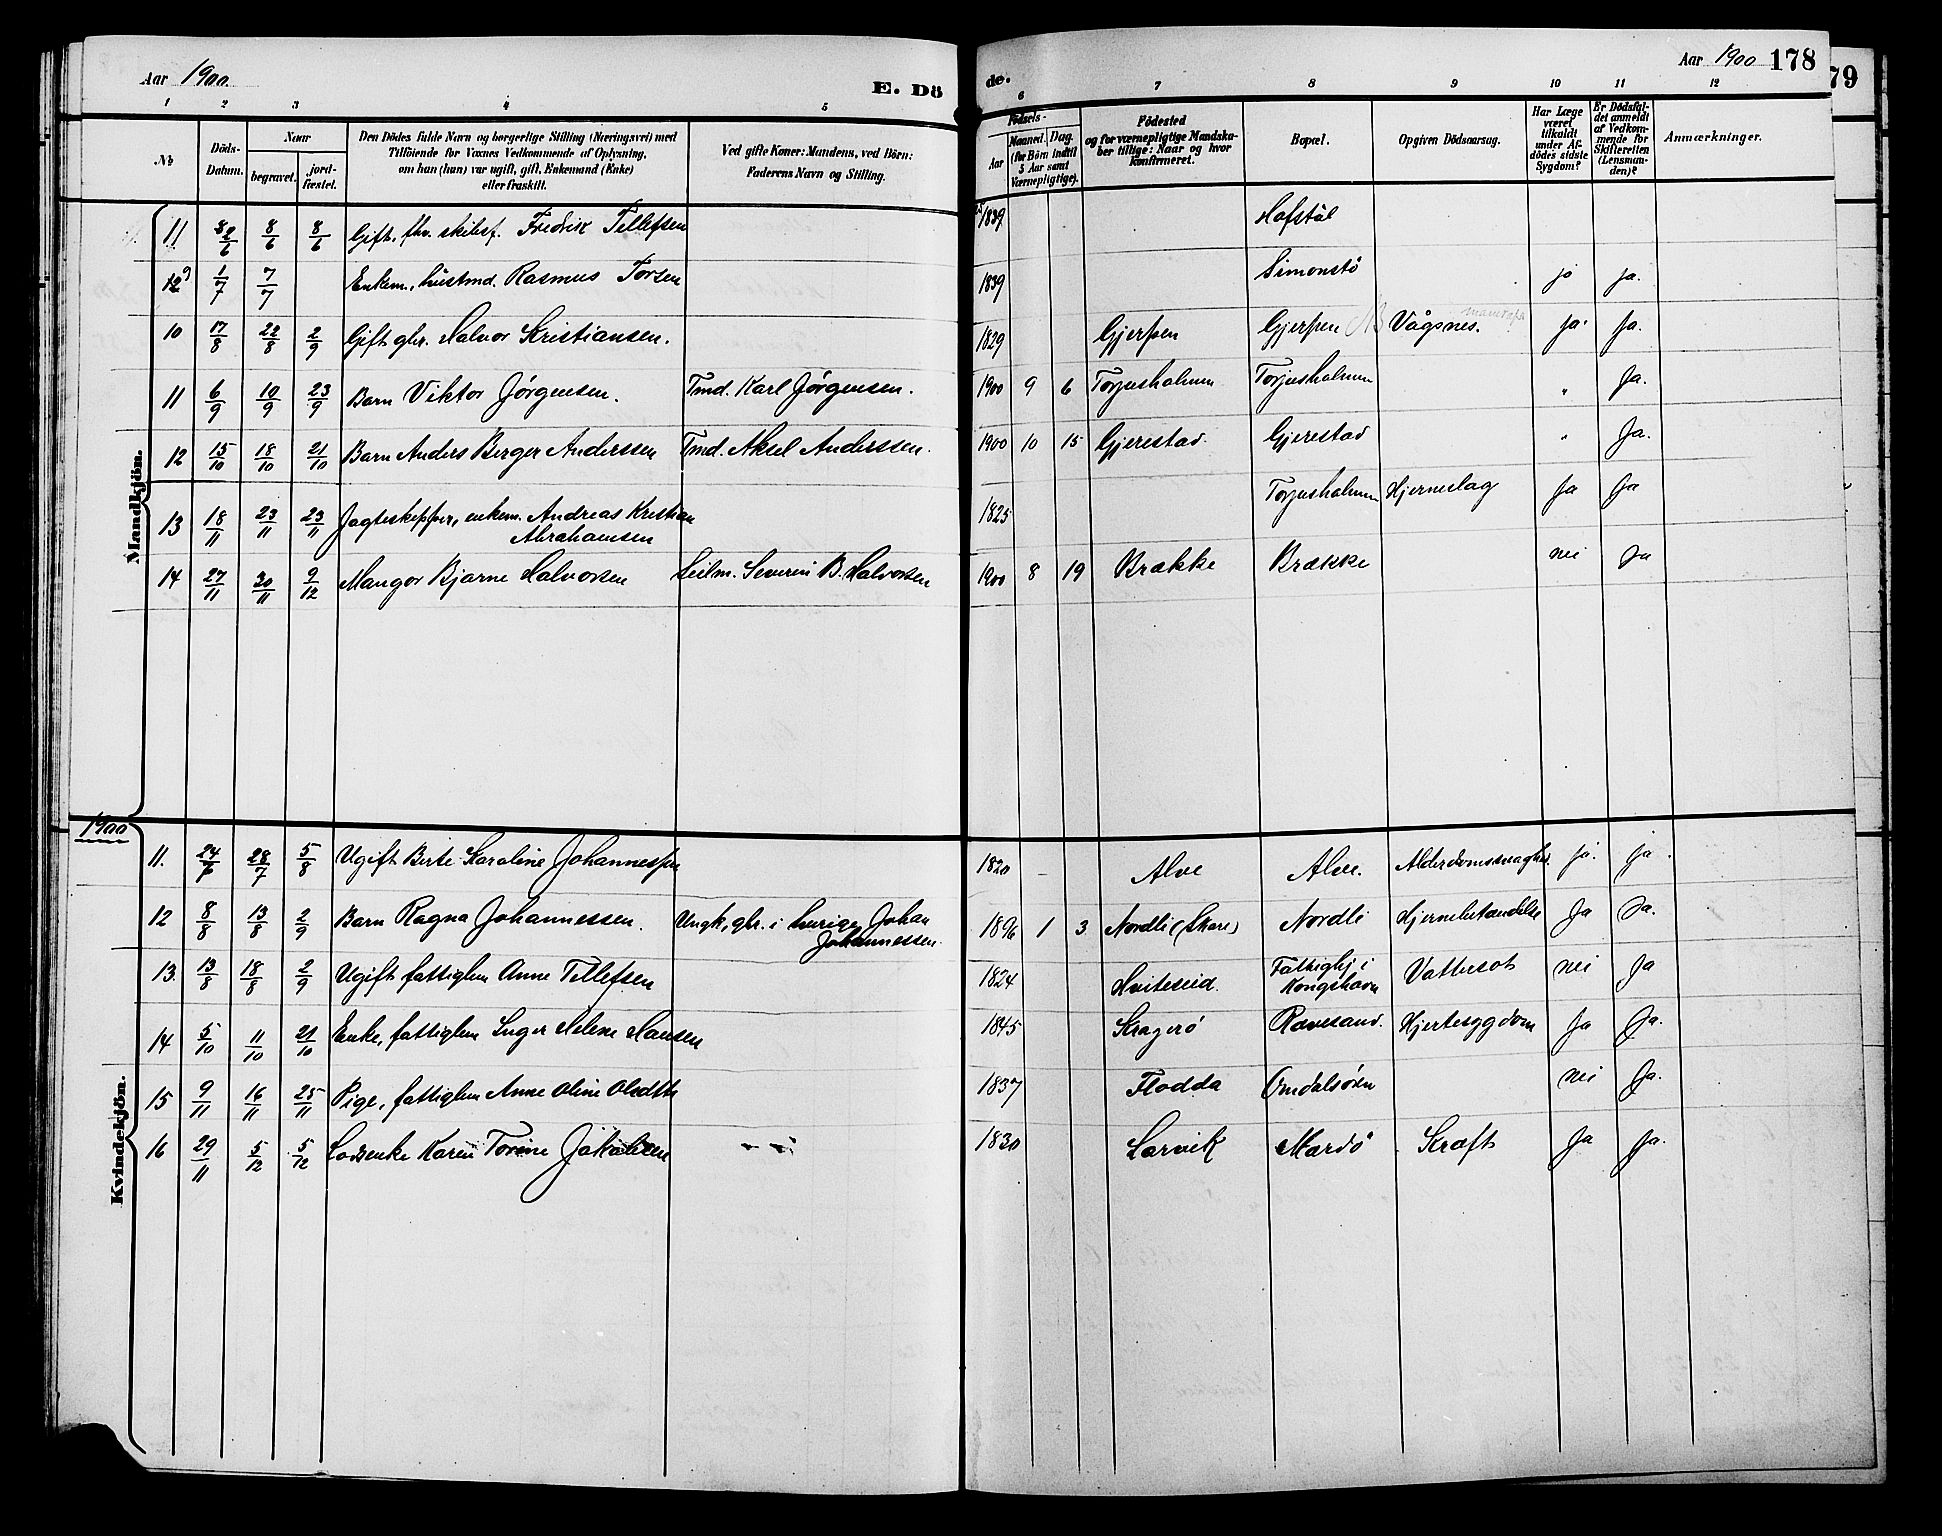 Aar 1900.
E. Dö
de.
Aar 1900 178
79
1 2 3 4 5 6 7 8 9 10 11 12
No
Döds-Datum.
Naar
begravet.
jord-fæstet.
Den Dödes fulde Navn og borgerlige Stilling (Næringsvei) med
Tilföiende for Voxnes Vedkommende af Oplysning,
om han (hun) var ugift, gift, Enkemand (Enke)
eller fraskilt.
Ved gifte Koner: Mandens, ved Börn:
Faderens Navn og Stilling.
Födsels-
Aar
Maaned. Dag.
(for Börn indtil
5 Aar samt
Værnepligtige).
Födested
og for værnepligtige Mandska-
ber tillige: Naar og hvor
konfirmeret.
Bopæl.
Opgiven Dödsaarsag.
Har Læge
været
tilkaldt
under Af-
dödes sidste
Sygdom?
Er Dödsfal-
det anmeldt
af Vedkom-
mende for
Skifteretten
(Lensman-
den)?
Anmærkninger.
Mandkjön.
11 2/6 8/6 8/6 Gift, fhv. skibsf. Fredrik Tellefsen 1839 Hofstøl
12 1/7 7/7 Enkem., husmd. Rasmus Torsen 1839 Simonstø ja ja.
10 17/8 22/8 2/9 Gift gbr. Halvor Kristiansen. 1829 Gjerpen Gjerpen Vågsnes. ja. ja.
11 6/9 10/9 23/9 Barn Viktor Jörgensen. Tmd. Karl Jörgensen. 1900 9 6 Torjusholmen Torjusholmen " Ja.
12 15/10 18/10 21/10 Barn Anders Berger Anderssen Tmd. Aksel Anderssen. 1900 10 15 Gjerestad. Gjerestad " Ja.
13 18/11 23/11 23/11 Jagteskipper, enkem. Andreas Kristian
Abrahamsen 1825 Torjusholmen Hjerneslag Ja Ja
14 27/11 30/11 9/12 Mangor Bjarne Halvorsen Seilm. Severin B. Halvorsen 1900 8 19 Brække Brække nei Ja
1900
Kvindekjön.
11. 24/7 28/7 5/8 Ugift Berte Karoline Johannessen 1820 - Alve Alve. Alderdomssvaghed ja. ja.
12 8/8 13/8 2/9 Barn Ragna Johannessen. Ungk, gbr. i Johan
Johannessen. 1896 1 3 Nordli (Skare) Nordli Hjernebetændelse Ja Ja.
13. 13/8 18/8 2/9 Ugift fattiglem Anne Tellefsen 1824 Hviteseid. Fattighj i
Kongshavn Vattersot nei Ja
14 5/10 11/10 21/10 Enke, fattiglem Inger Helene Hansen 1845 Kragerö Rævesand. Hjertesygdom Ja Ja.
15 9/11 16/11 25/11 Pige, fattiglem Anne Oline Olsdtr 1837 Flodda Omdalsören nei Ja.
16 29/11 5/12 5/12 Losenke Karen Torine Jakobsen 1830 Larvik Mardö Kræft Ja Ja.